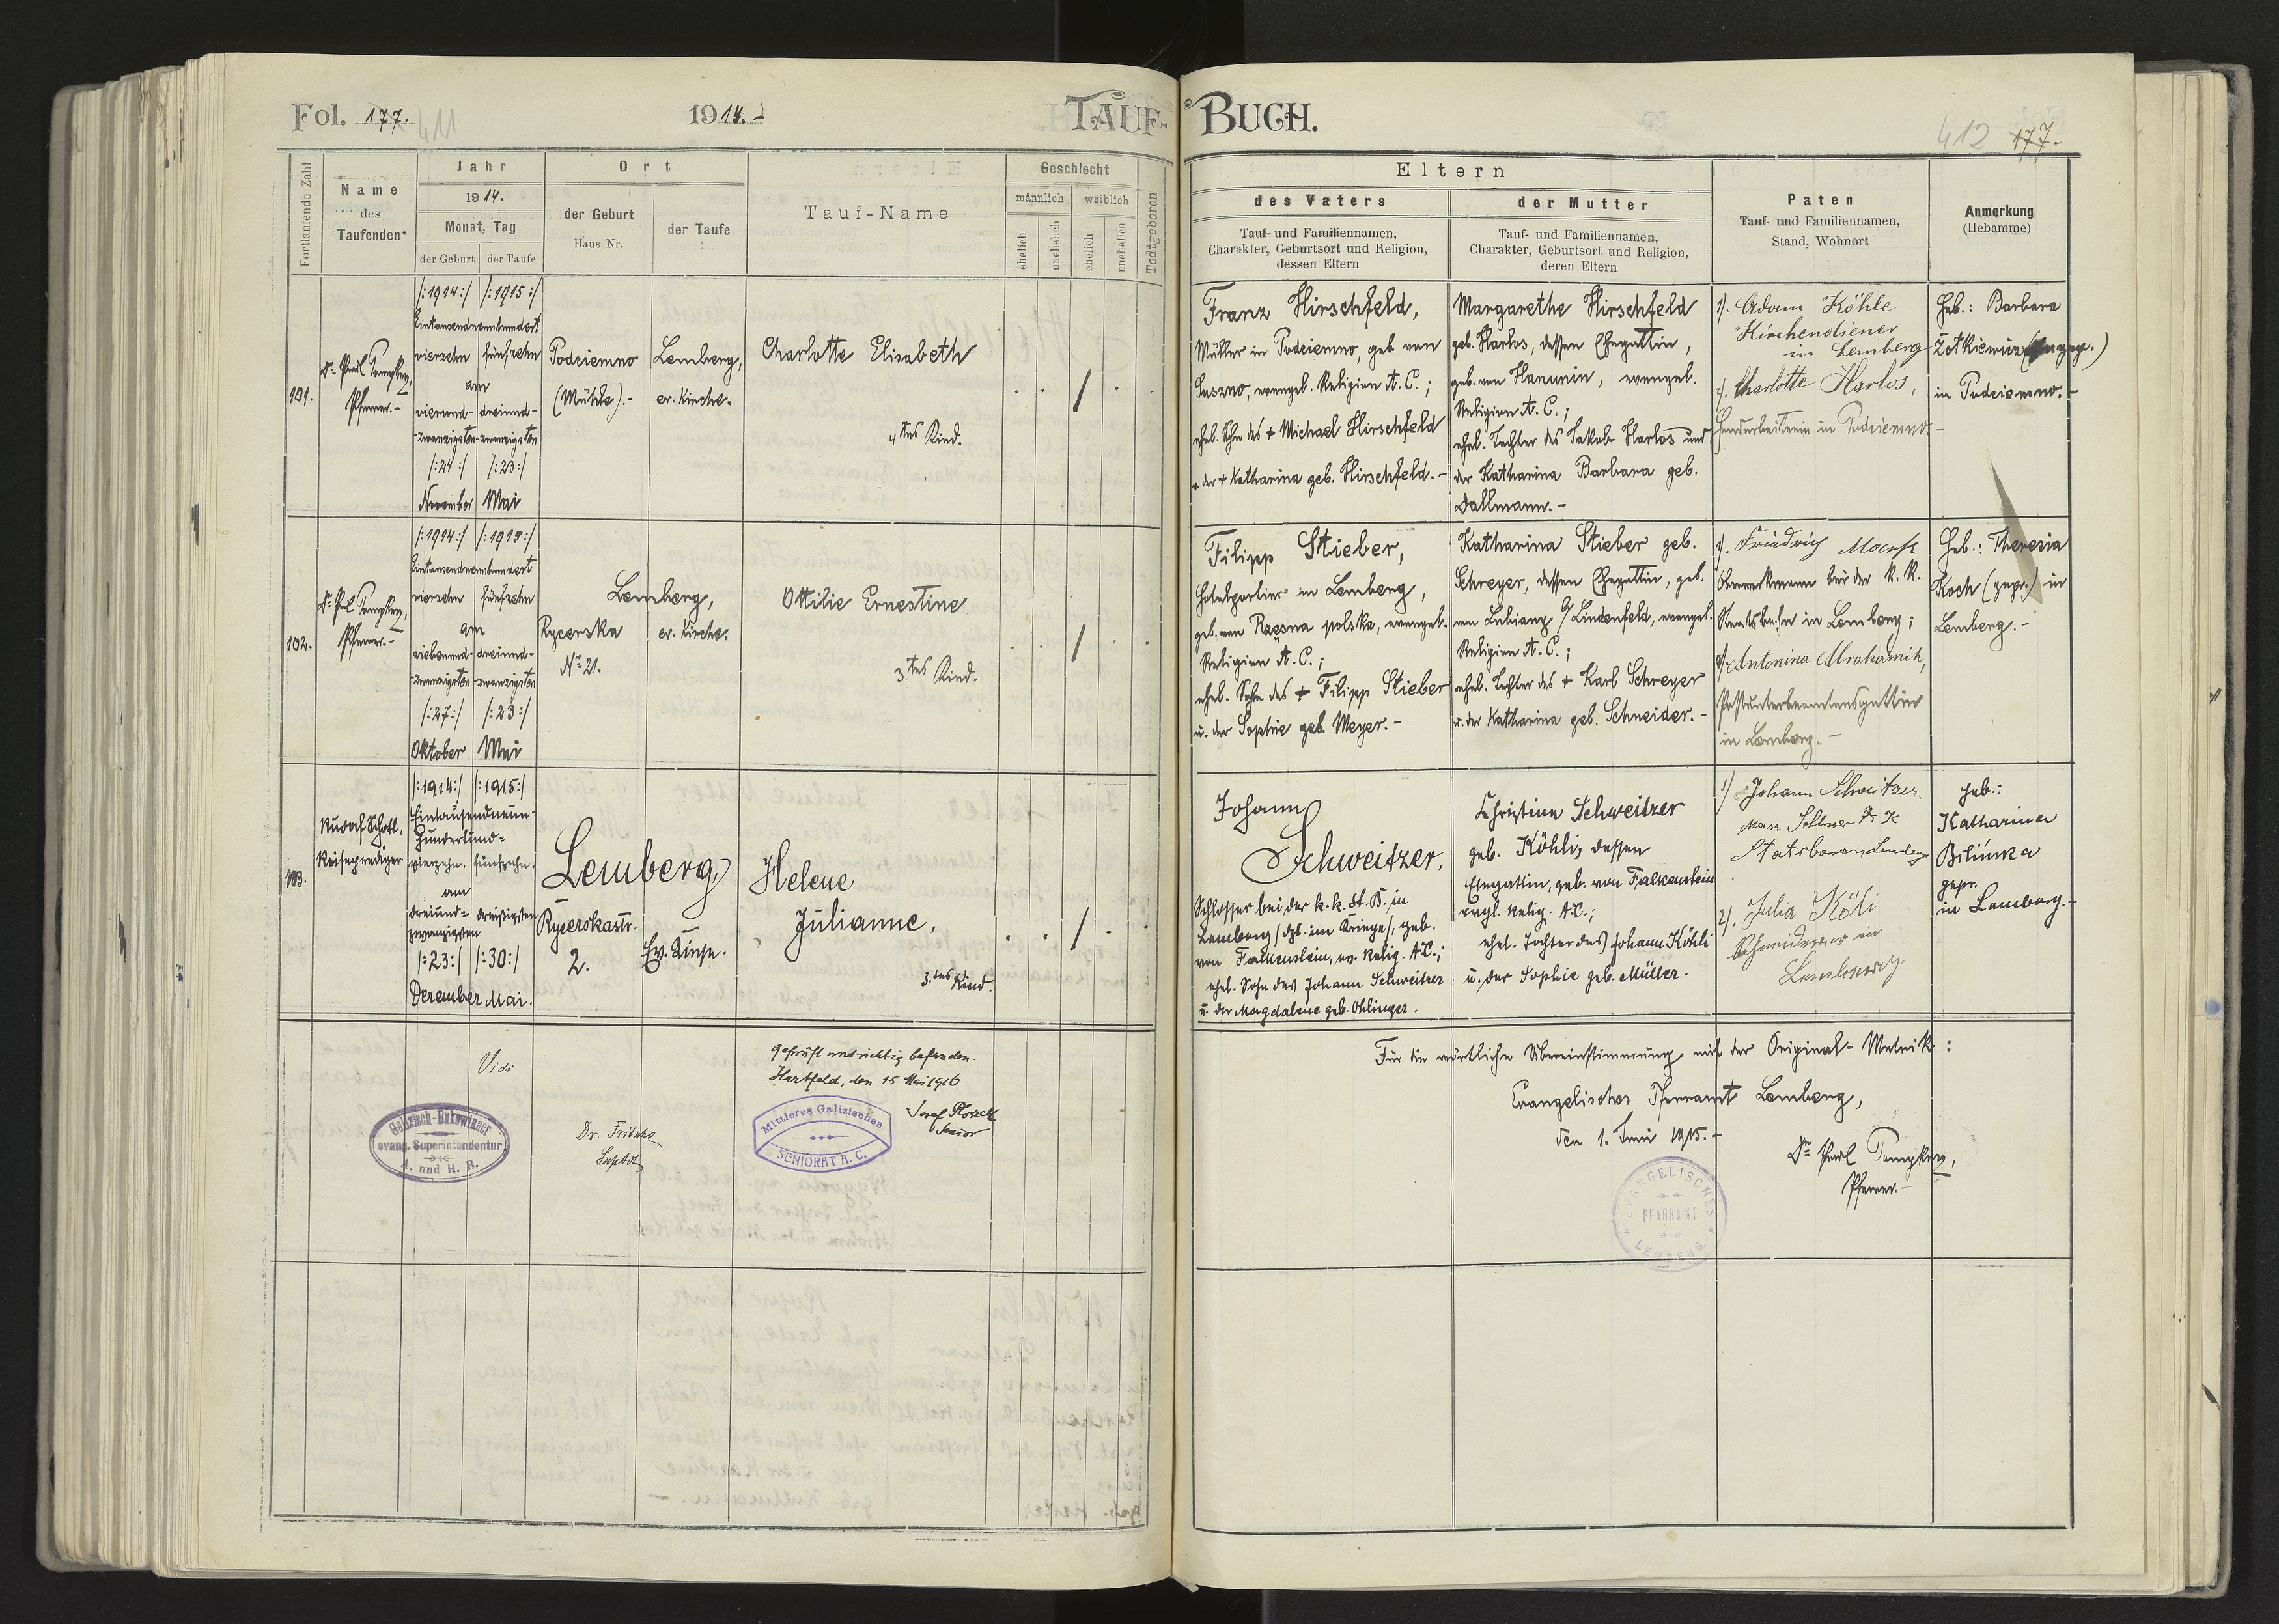 Fol. 177.
411
1914.-
TAUF-
BUCH.
412 177.-
Fortlaufende Zahl
Name
des
Taufenden
Jahr
1914.
Monat, Tag
der Geburt
der Taufe
Ort
der Geburt
Haus Nr.
der Taufe
Tauf-Name
Geschlecht
männlich
weiblich
ehelich
unehelich
ehelich
unehelich
Todtgeboren
Eltern
des Vaters
Tauf- und Familiennamen,
Charakter, Geburtsort und Religion,
dessen Eltern
der Mutter
Tauf- und Familiennamen,
Charakter, Geburtsort und Religion,
deren Eltern
Paten
Tauf- und Familiennamen,
Stand, Wohnort
Anmerkung
(Hebamme)
101.
Pfarrer.-
/:1914:/ /:1915:/
Eintausendneunhundert
vierzehn fünfzehn
am
vierund- dreiund-
-zwanzigsten -zwanzigsten
/:24:/ /:23:/
November Mai
Podciemno
(Mühle).-
Lemberg,
ev. Kirche.
Charlotte Elisabeth
4tes Kind.
Franz Hirschfeld,
Müller in Podciemno, geb. von
Suszno, evangel. Religion A. C.;
ehel. Sohn des + Michael Hirschfeld
u. der + Katharina geb. Hirschfeld.-
Margarethe Hirschfeld
geb. Harlos, dessen Ehegattin,
geb. von Hanunin, evangel.
Religion A. C.;
ehel. Tochter des Jakob Harlos und
der Katharina Barbara geb.
Dallmann.-
1). Adam Köhle
Kirchendiener
in Lemberg
2). Charlotte Harlos,
Handarbeiterin in Podciemno.-
Heb.: Barbara
in Podciemno.-
102.
Pfarrer.-
/:1914:/ /:1915:/
Eintausendneunhundert
vierzehn fünfzehn
am
siebenund- dreiund-
-zwanzigsten -zwanzigsten
/:27:/ /:23:/
Oktober Mai
Lemberg,
Rycerska
Nr. 21.
ev. Kirche.
Ottilie Ernestine
3tes Kind.
Filipp Stieber,
Hotelportier in Lemberg,
geb. von Rzęsna polska, evangel.
Religion A. C.;
ehel. Sohn des + Filipp Stieber
u. der Sophie geb. Meyer.-
Katharina Stieber geb.
Schreyer, dessen Ehegattin, geb.
von Lubianz b/ Lindenfeld, evangel.
Religion A. C.;
ehel. Tochter des + Karl Schreyer
u. der Katharina geb. Schneider.-
1). Friedrich
bei der k. k.
Staatsbahn in Lemberg;
2). Antonina
Postunterbeamtensgattin
in Lemberg.-
Heb.: Theresia
Koch (gepr.) in
Lemberg.-
103.
Rudolf Schotl,
Reiseprediger
/:1914:/ /:1915:/
Eintausendneun-
hundertund-
vierzehn, fünfzehn.
am
dreiund- dreißigsten
zwanzigsten
/:23:/ /:30:/
Dezember Mai.
Lemberg,
Rycerskastr.
2.
Ev. Kirche.
Helene
Julianne,
3. tes Kind.
Johann
Schweitzer,
Schlosser bei der k. k. St. B. in
Lemberg /dzt. im Kriege/, geb.
von Falkenstein, ev. Relig. A.C.;
ehel. Sohn des Johann Schweitzer
u. der Magdalene geb. Ohlinger.
Christine Schweitzer
geb. Köhli, dessen
Ehegattin, geb. von Falkenstein
evgl. Relig. A.C.;
ehel. Tochter des Johann Köhli
u. der Sophie geb. Müller.
1) Johann Schweitzer
2). Julia Köli
in
Lemberg
Heb.:
Katharina
Bilinka
gepr.
in Lemberg.-
Vidi
Galizisch-Bukowinaer
evang. Superintendentur
A. und H. B.
Dr. Fritsche
Suptdt
Geprüft und richtig befunden.
Hartfeld, den 15. Mai 1916
Mittleres Galizisches
SENIORAT A. C.
Josef
Senior
Für die wörtliche Übereinstimmung mit der Original-Matrik:
Evangelisches Pfarramt Lemberg,
den 1. Juni 1915.-
Pfarrer.-
EVANGELISCHES
PFARRAMT
LEMBERG